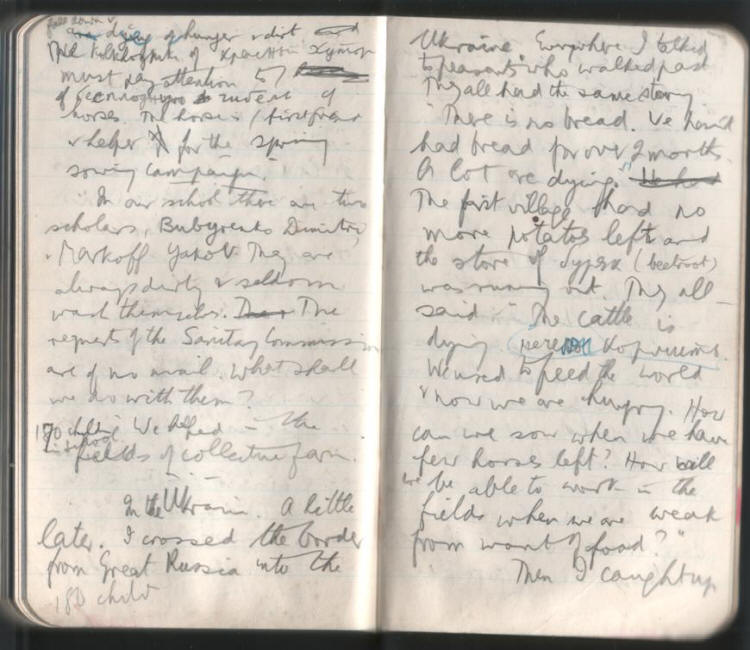 are dying of hunger & dirt and
must pay attention to
of
horses. The horse is / first friend
& helper for the spring
sowing campaign."
"In our school there are two
scholars, Bubyrenko Dimitri
& Markoff Yakov. They are
always dirty & seldom
wash themselves. The
request of the Sanitary Commission
are of no avail. What shall
we do with them?
170 children in school We helped in the
fields of collective farm.
In the Ukraine. A little
later. I crossed the border
from Great Russia into the
180 child
Ukraine. Everywhere I talked
to peasants who walked past
They all had the same story
"There is no bread. We haven't
had bread for over 2 months.
A lot are dying."
The first village had no
more potatoes left and
the store of (beetroot)
was running out. They all
said: "The cattle is
dying
We used to feed the world
& now we are hungry. How
can we sow when we have
few horses left? How will
we be able to work in the
fields when we are weak
from want of food?"
Then I caught up